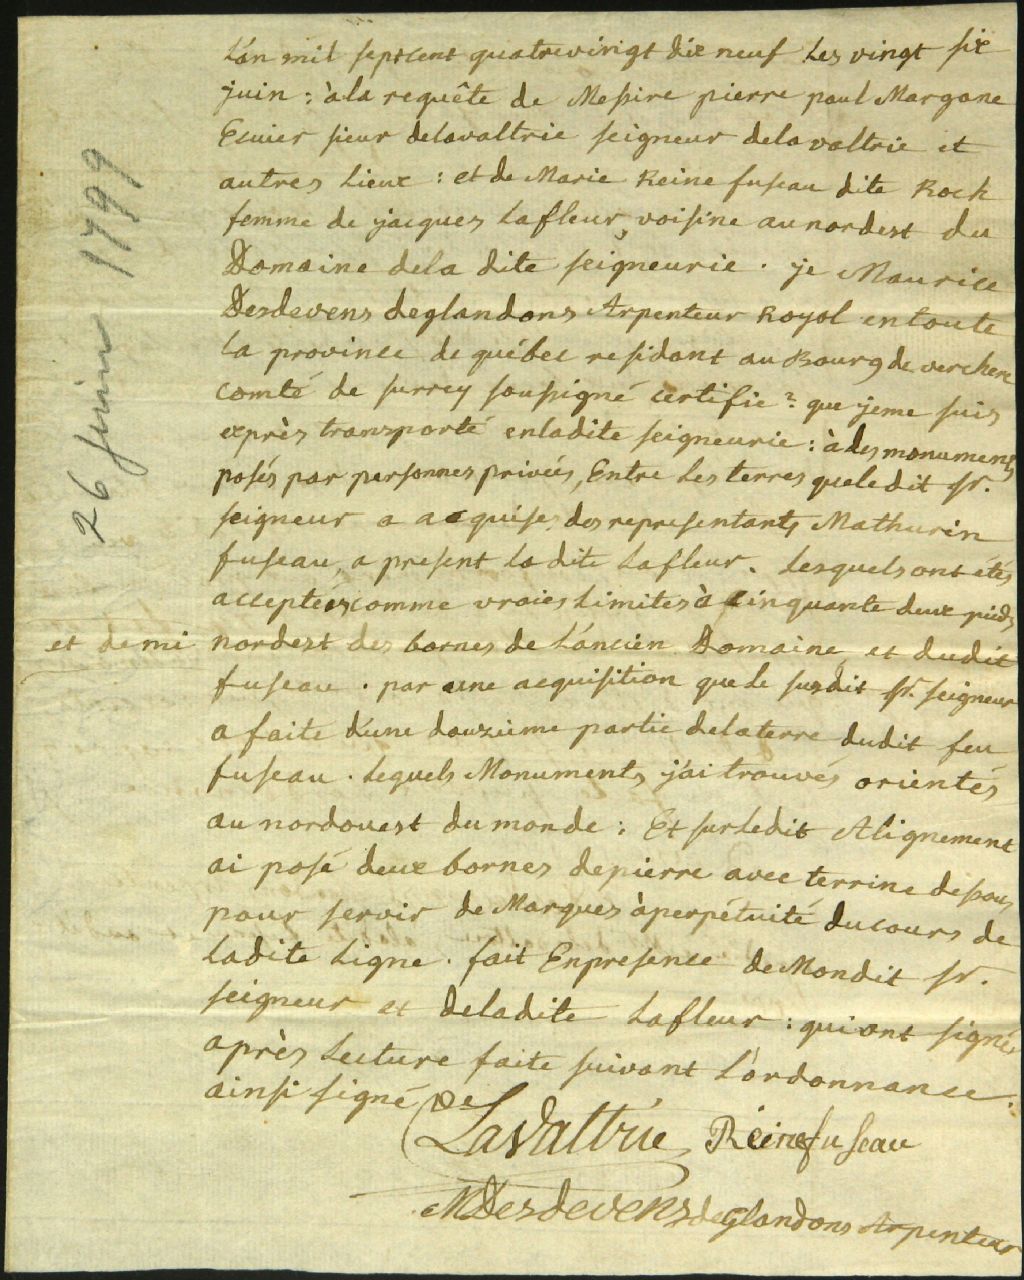 26 Juin 1799
L'an mil septcent quatrevingt dix neuf Les vingt six
juin : à la requête de Messire pierre paul Margane
Ecuier sieur delavaltrie seigneur delavaltrie et
autres Lieux : et de Marie Reine fuseau dite Roch
femme de jacques Lafleur, voisine au nordest du
Domaine dela dite seigneurie . je Maurice
Desdevens deglandons Arpenteur Royal en toute
La province de québec residant au Bourg de verchere
comté de surrey soussigné certifie que jeme suis
exprès transporté enladite seigneurie : à des monuments
posés par personnes privées, Entre Les terres queledit sr.
seigneur a acquises des representants Mathurin
fuseau, a present La dite Lafleur . Lesquels ont étés
acceptées comme vraies Limites à cinquante deux pieds
et demi
nordest des bornes de L'ancien Domaine et dudit
fuseau . par une acquisition que Le susdit sr. seigneur
a faite d'une douzieme partie delaterre dudit feu
fuseau . Lequels Monuments j'ai trouvés orientés
au nordouest du monde : Et surledit Alignement
ai posé deux bornes depierre avec terrine dessous
pour servir de Marques à perpétuité ducours de
Ladite Ligne . fait Enpresence de Mondit sr.
seigneur et deladite Lafleur : qui ont signé
après Lecture faite suivant L'ordonnance .
ainsi signé De
LaValtrie Reine fuseau
MDesdevens de Glandons Arpenteur